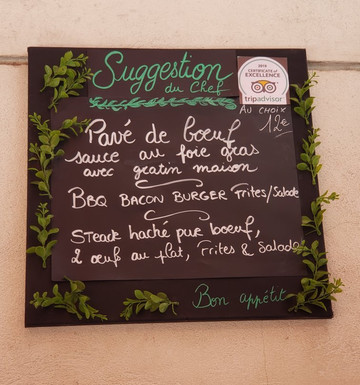 Suggestion
du Chef
2018
CERTIFICATE of
EXCELLENCE
tripadvisor
AU CHOIX
12€
Pavé de bœuf
sauce au foie gras
avec gratin maison
BBQ BACON BURGER Frites/Salade
STEACK haché pur boeuf,
2 œuf au plat, Frites & Salade
Bon appétit